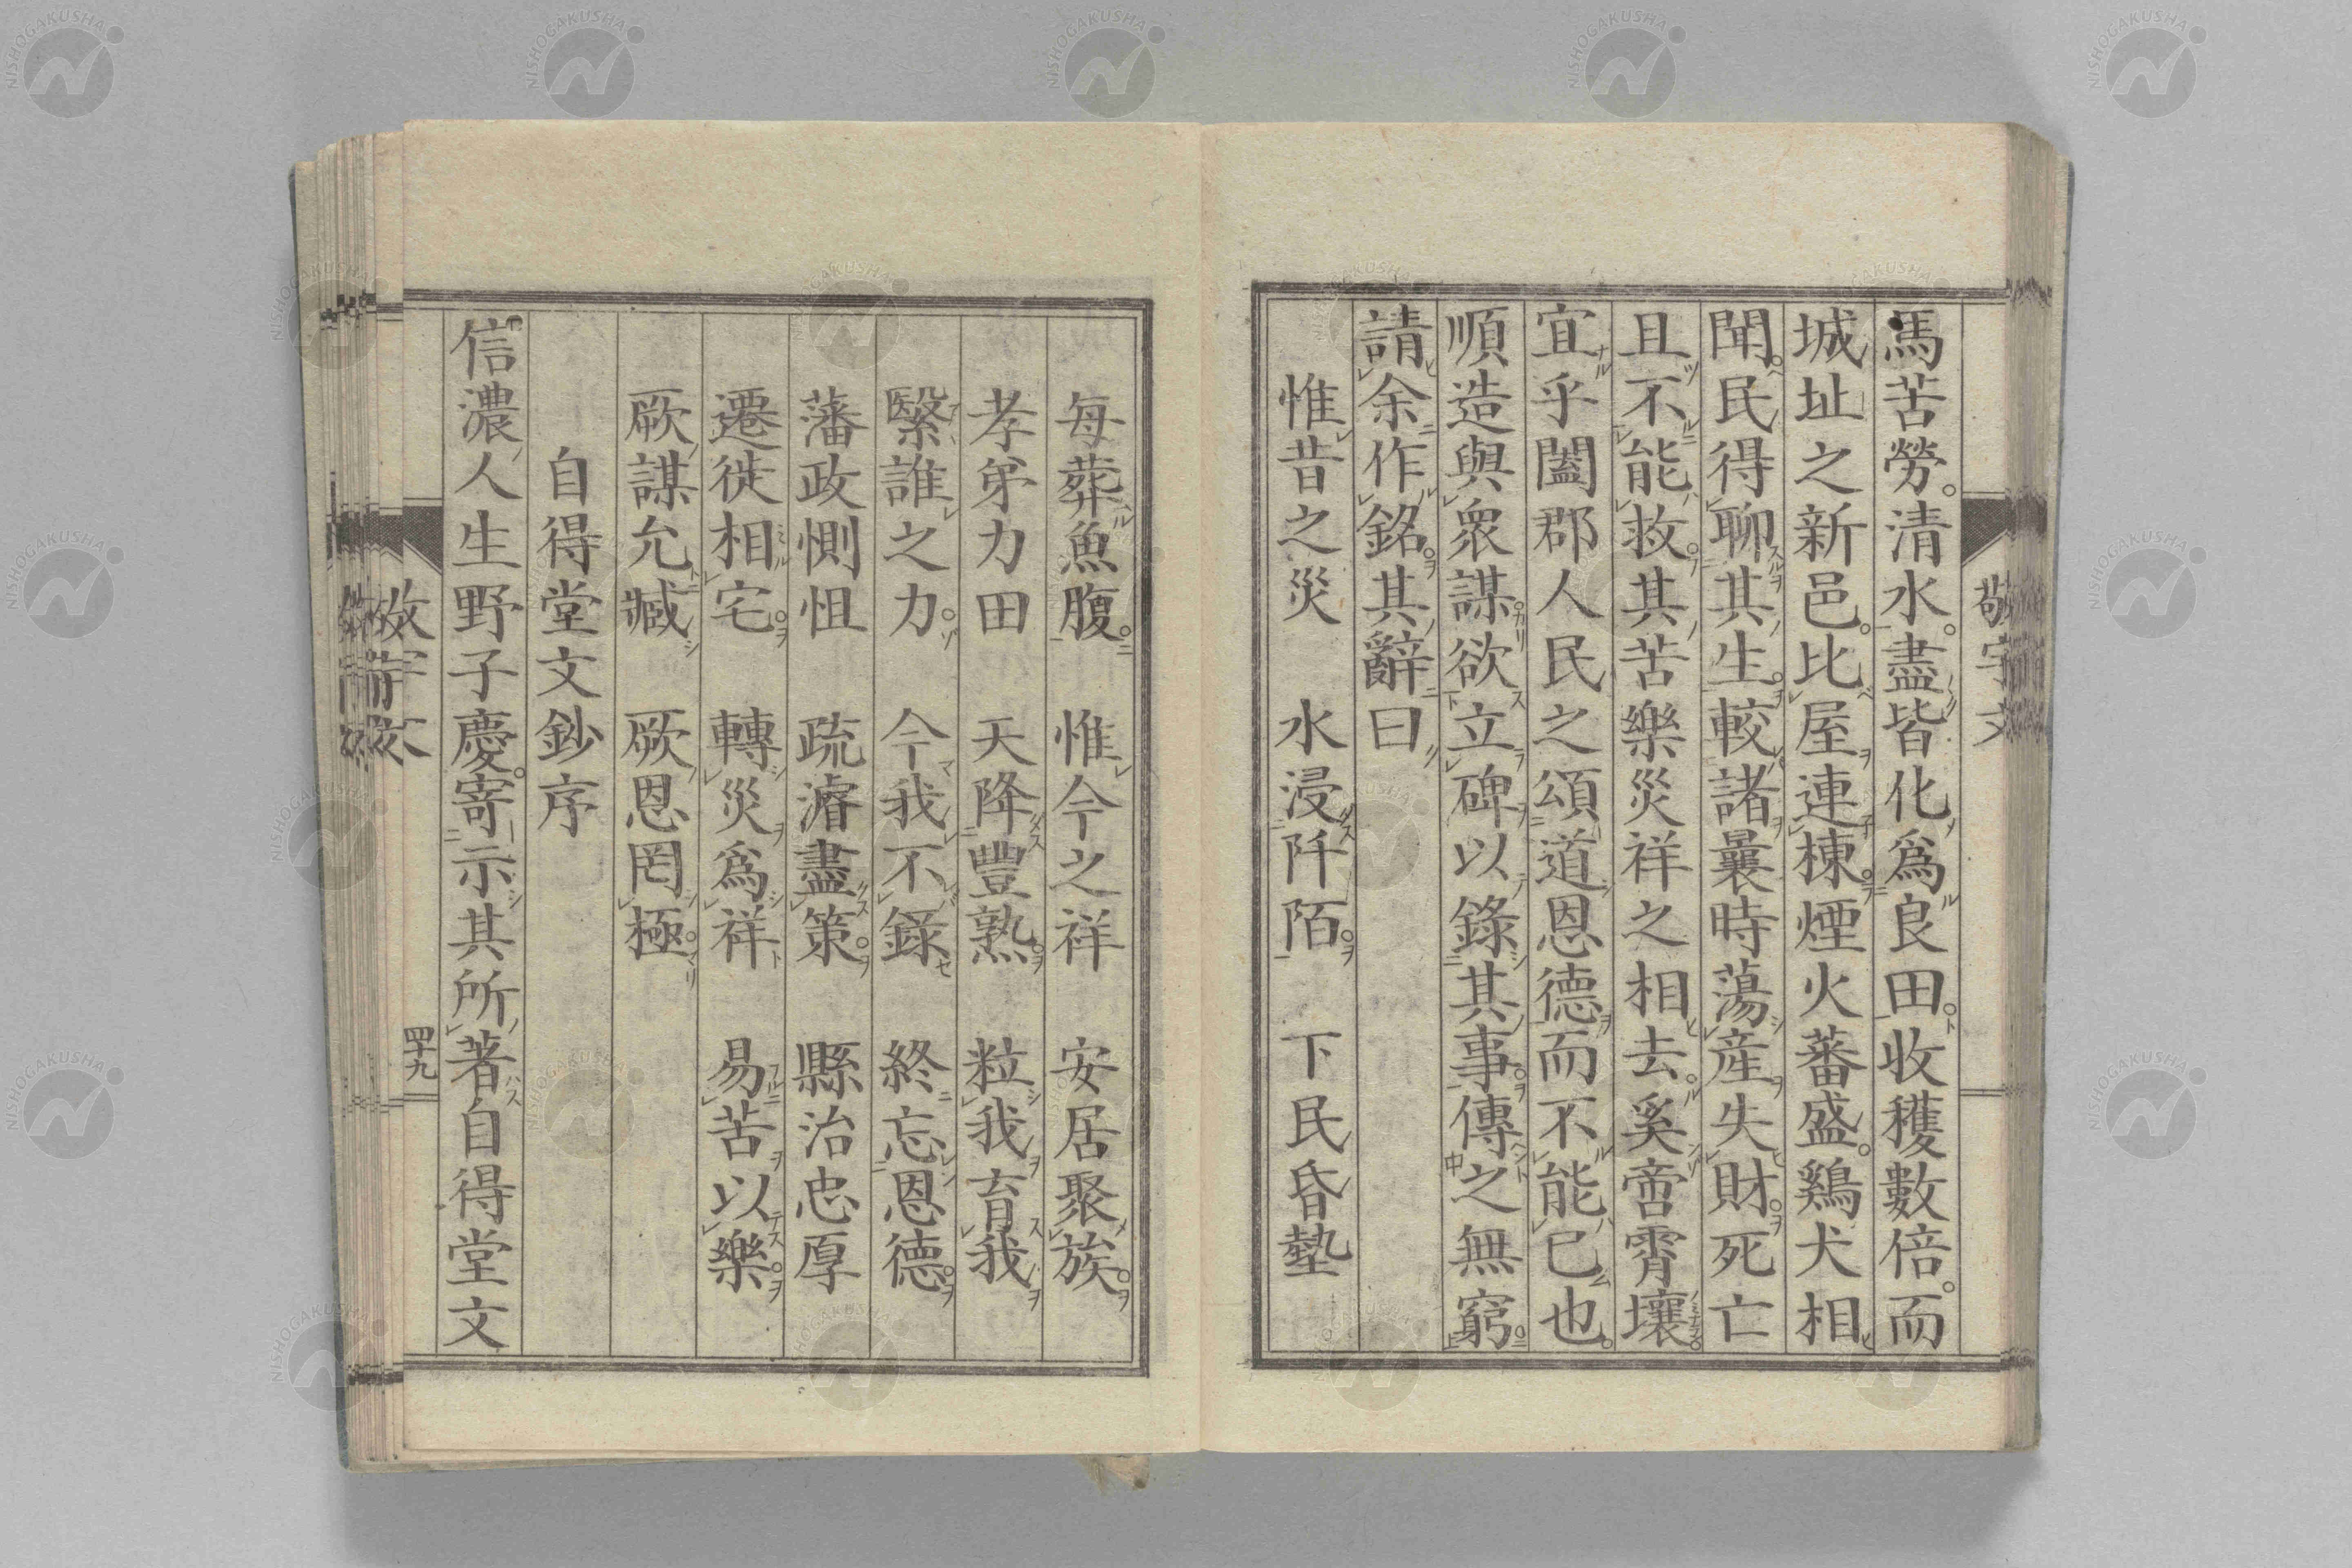 馬苦勞。清水。盡皆化爲良田。收穫數倍。而
城址之新邑。比屋連棟。煙火蕃盛。鷄犬相
聞。民得聊其生。較諸曩時蕩産失財。死亡
且不能救。其苦樂災祥之相去。奚啻霄壤。
宜乎闔郡人民之頌道恩德而不能已也。
順造與衆謀。欲立碑以錄其事。傳之無窮。
請余作銘。其辭曰
惟昔之災 水浸阡陌。 下民昏墊
每葬魚腹。 惟今之祥 安居聚族。
孝弟力田 天降豐熟。 粒我育我
繄誰之力。 今我不錄 終忘恩德。
藩政惻怛 疏濬盡策。 縣治忠厚
遷徙相宅。 轉災爲祥 易苦以樂。
厥謀允臧 厥恩罔極。
自得堂文鈔序
信濃人生野子慶。寄示其所著自得堂文
敬宇文
四十九
NISHOGAKUSHA